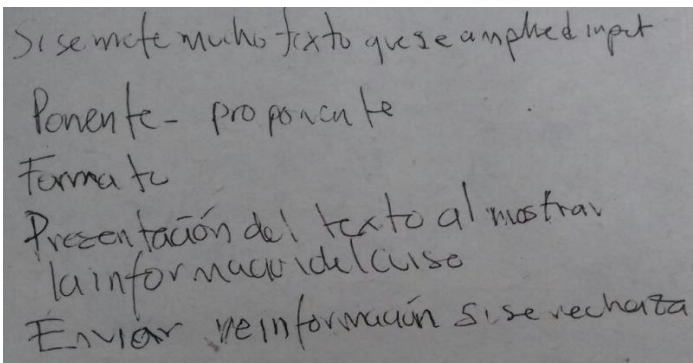 Si se mete mucho texto que se amplie el input
Ponente - proponente
Formato
Presentación del texto al mostrar
la información del curso
Enviar información si se rechaza